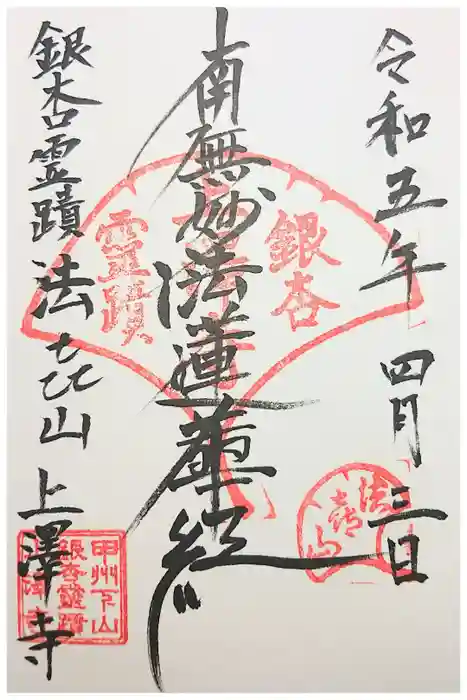 令和五年 四月 三日
南無妙法蓮華経
銀杏霊蹟 法㐂山 上澤寺
銀杏
靈蹟
法㐂山
甲州下山
銀杏靈蹟
上澤寺